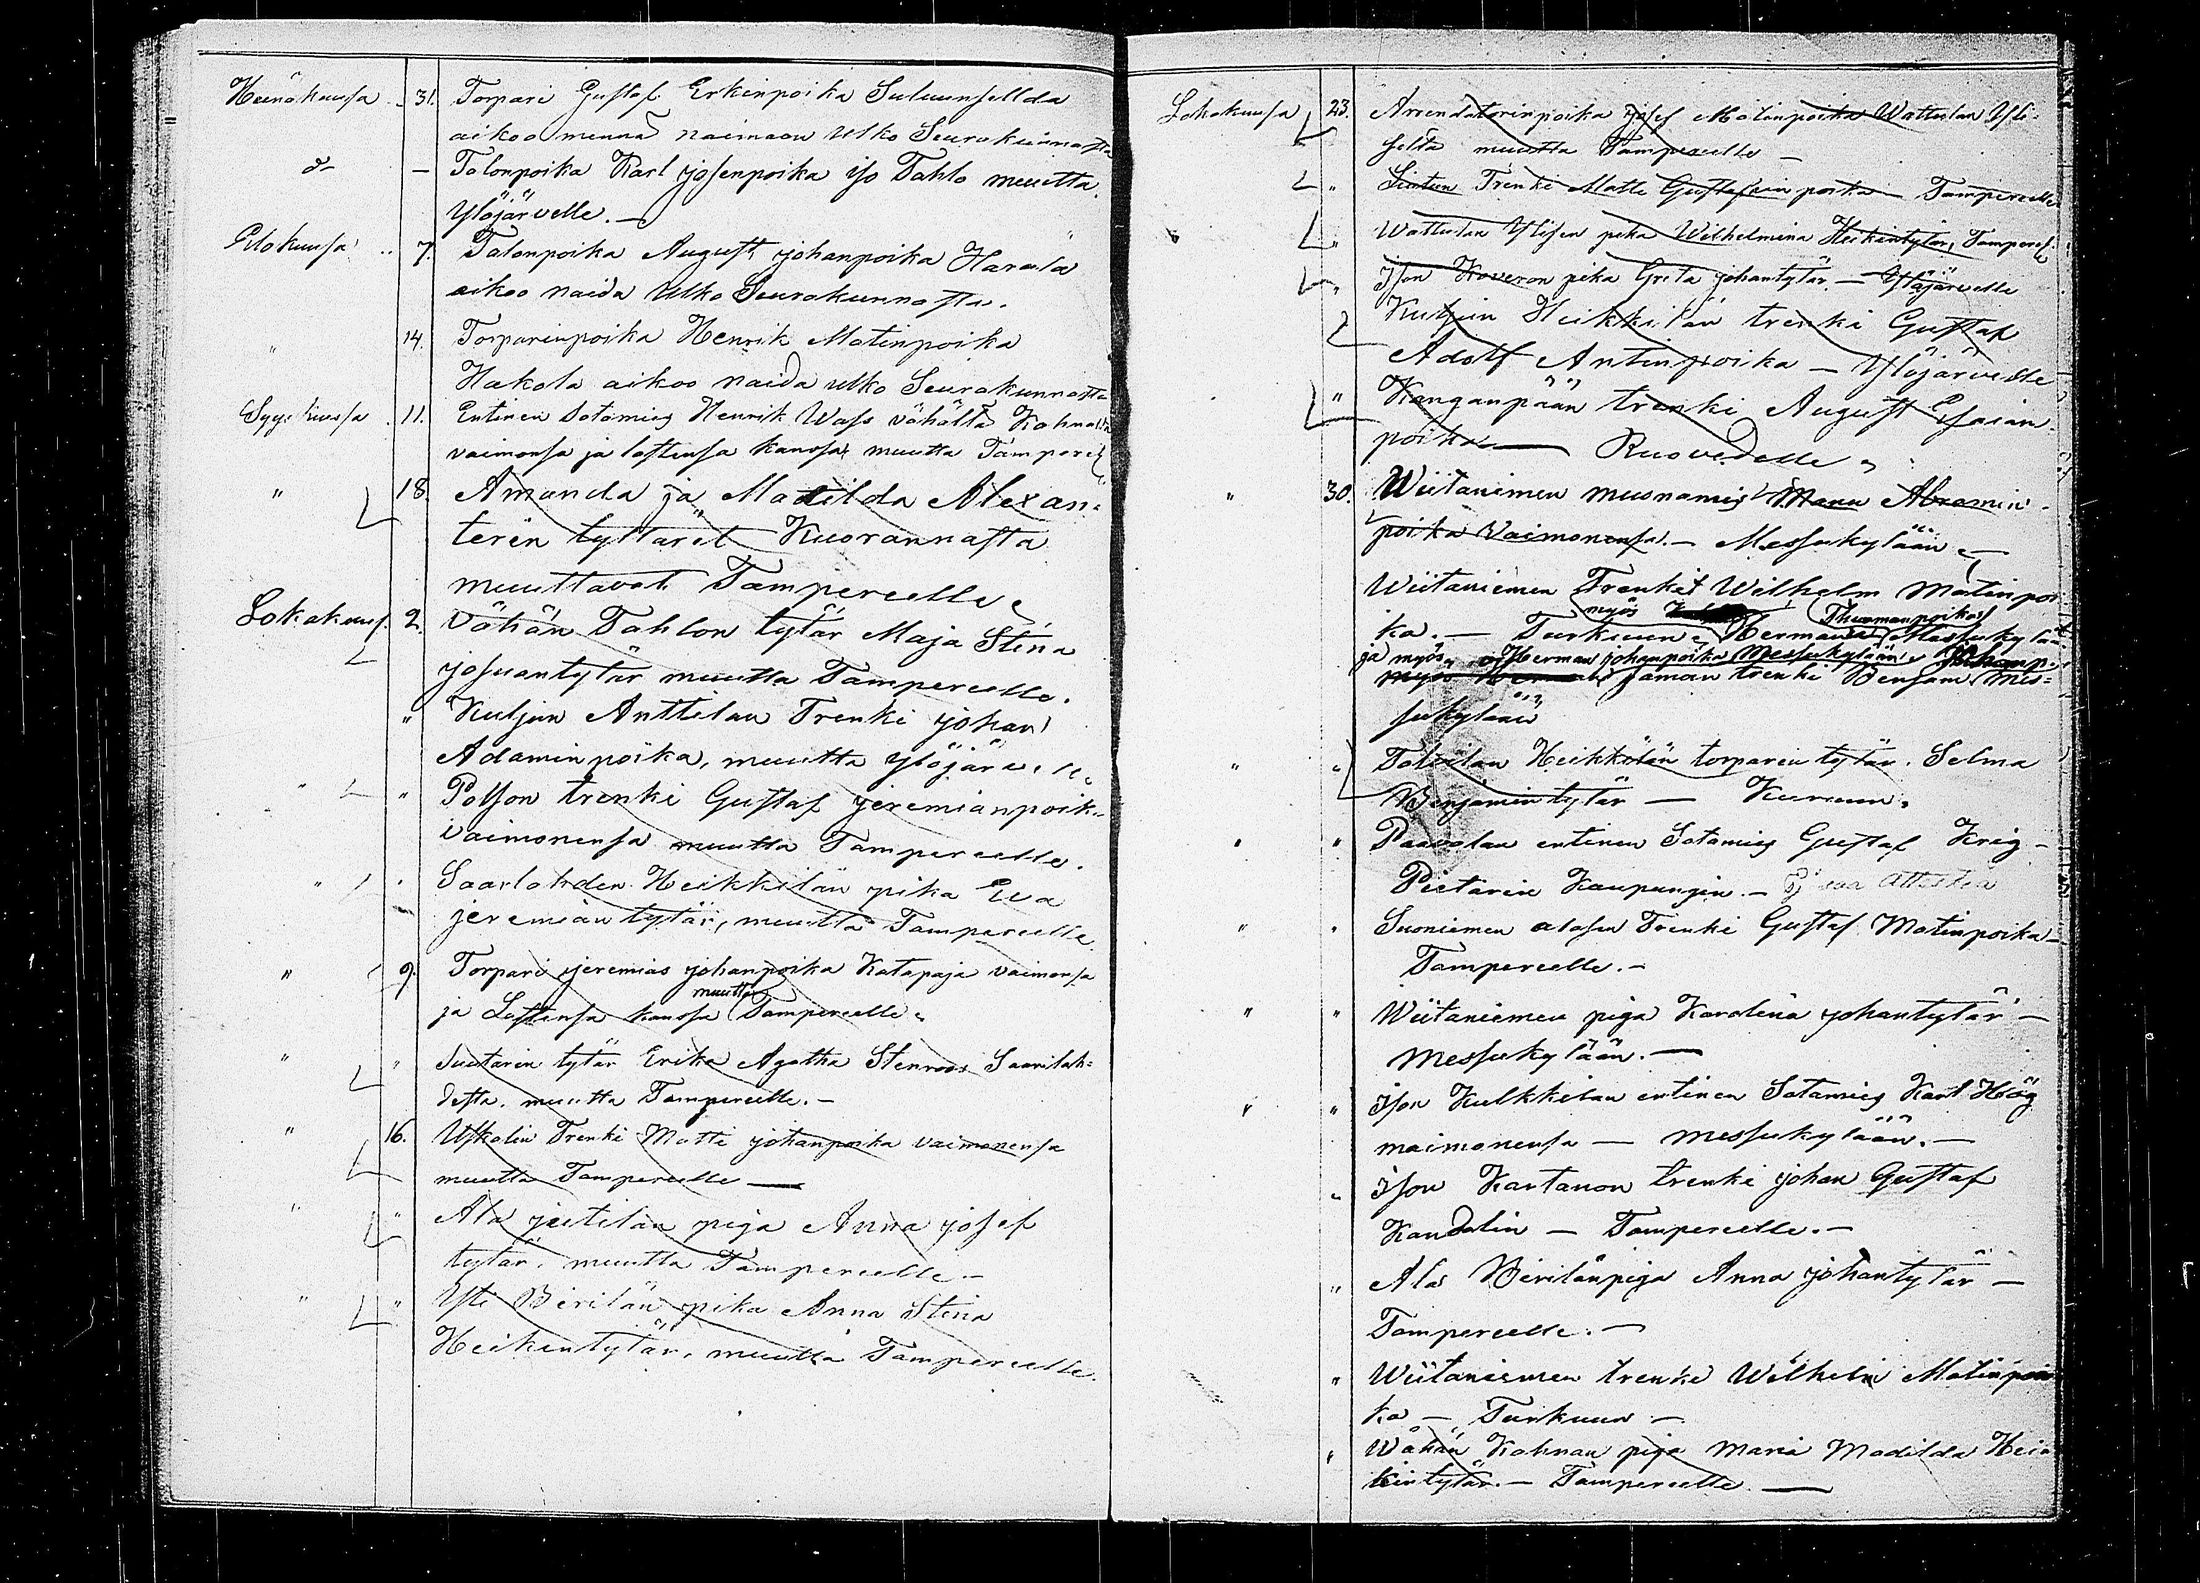 Heinäkuusa 31. Torpari Gustaf Erkinpoika
aikoo mennä naimaan Ulko Seurakunnasta
d– – Talonpoika Karl josenpoika iso Tahlo muutta
Ylöjärvelle. –
Elokuusa 7. Talonpoika August johanpoika Harala
aikoo naida Ulko Seurakunnasta.
" 14. Torparinpoika Henrik Matinpoika
Hakola aikoo naida ulko Seurakunnasta
11. Entinen Sotamies Henrik Wass vähältä
vaimonsa ja lastensa kanssa muutta
" 18. Amanda ja Matilda Alexan-
terin tyttäret Kuorannasta
muuttavat Tampereelle
Lokakuus. 2. Vähän Tahlon tytär Maja Stina
josuantytär muutta Tampereelle.
" Kuljun Anttilan Trenki johan
Adaminpoika, muutta
" " trenki Gustaf jeremianpoik
vaimonensa muutta Tampereelle.
" Saarlahden Heikkilän pika Eva
jeremiantytär, muutta Tampereelle
" 9. Torpari jeremias johanpoika Katapaja vaimonsa
muutta
ja Lastensa kanssa Tampereelle
" " Suutarin tytär Erika Agatha Stenroos Saarilah-
desta. muutta Tampereelle. –
" 16. Uskalin Trenki Matti johanpoika vaimonensa
muutta Tampereelle –
" " Ala jutilan piga Anna josef
tytär. muutta Tampereelle –
" " Yli Pirilän pika Anna Stina
Heikintytär, muutta Tampereelle.
Lokakuusa 23. Arrendatorinpoika josef Matinpoika Wattulan Yli-
seltä muutta Tampereelle –
" Trenki Matts poika – Tampereelle
" Wattulan Ylisen pika Wilhelmina Heikintytär,
" Ison Koveron pika Greta johantytär. – Ylöjärvelle
Kuljun Heikkilän trenki Gustaf
Adolf Antinpoika – Ylöjärvelle
" Kanganpään trenki August Esaian
poika – Ruovedelle
" 30. Wiitaniemen muonamies Manu Abramin
poika Vaimonensa. – Messukylään –
Wiitaniemen Trenkit Wilhelm Matinpoi
myös Thuomanpoika
ka. – Turkuun Herman Messukylä-
ja myös Herman johanpoika Messukylään
trenki Mes-
sukylään
" " Heikkilän torparin tytär. Selma
Benjamintytär – Kuruun.
" " Paavolan entinen Sotamies Gustaf Krig –
Pietarin Kaupungin. –
" " Suoniemen alasen Trenki Gustaf Matinpoika –
Tampereelle. –
" " Wiitaniemen piga Karolina johantytär –
Messukylään. –
" " Ison Kulkkilan entinen Sotamies Karl Hög
maimonensa – Messukylään. –
" Ison Kartanon trenki johan Gustaf
Kandolin – Tampereelle. –
" Ala Pirilänpiga Anna johantytär –
Tampereelle. –
" Wiitaniemen trenki Wilhelm Matinpoi
ka – Turkuun –
" Wähän Kahnan piga Maria Madilda Hei
kintytär. – Tampereelle –